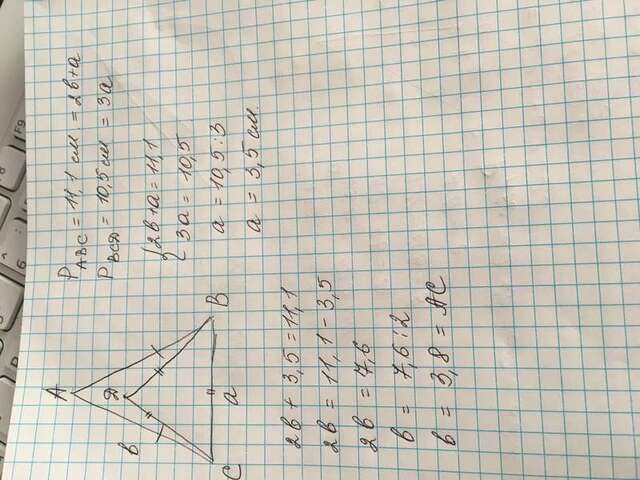 P ABC = 11,1 см = 2b+a
P BCD = 10,5 см = 3a
{ 2b+a = 11,1
3a = 10,5
a = 10,5:3
a = 3,5 см
A
D
b
C
a
B
2b + 3,5 = 11,1
2b = 11,1 - 3,5
2b = 7,6
b = 7,6:2
b = 3,8 = AC
F9